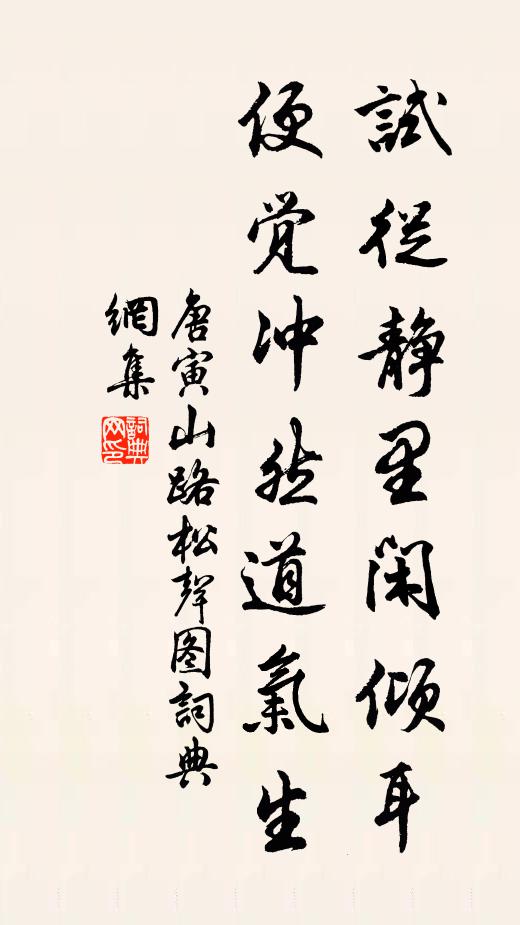 試從静里閑傾耳
便覺冲然道氣生
唐寅山路松聲图詞典
網集
詞典网印